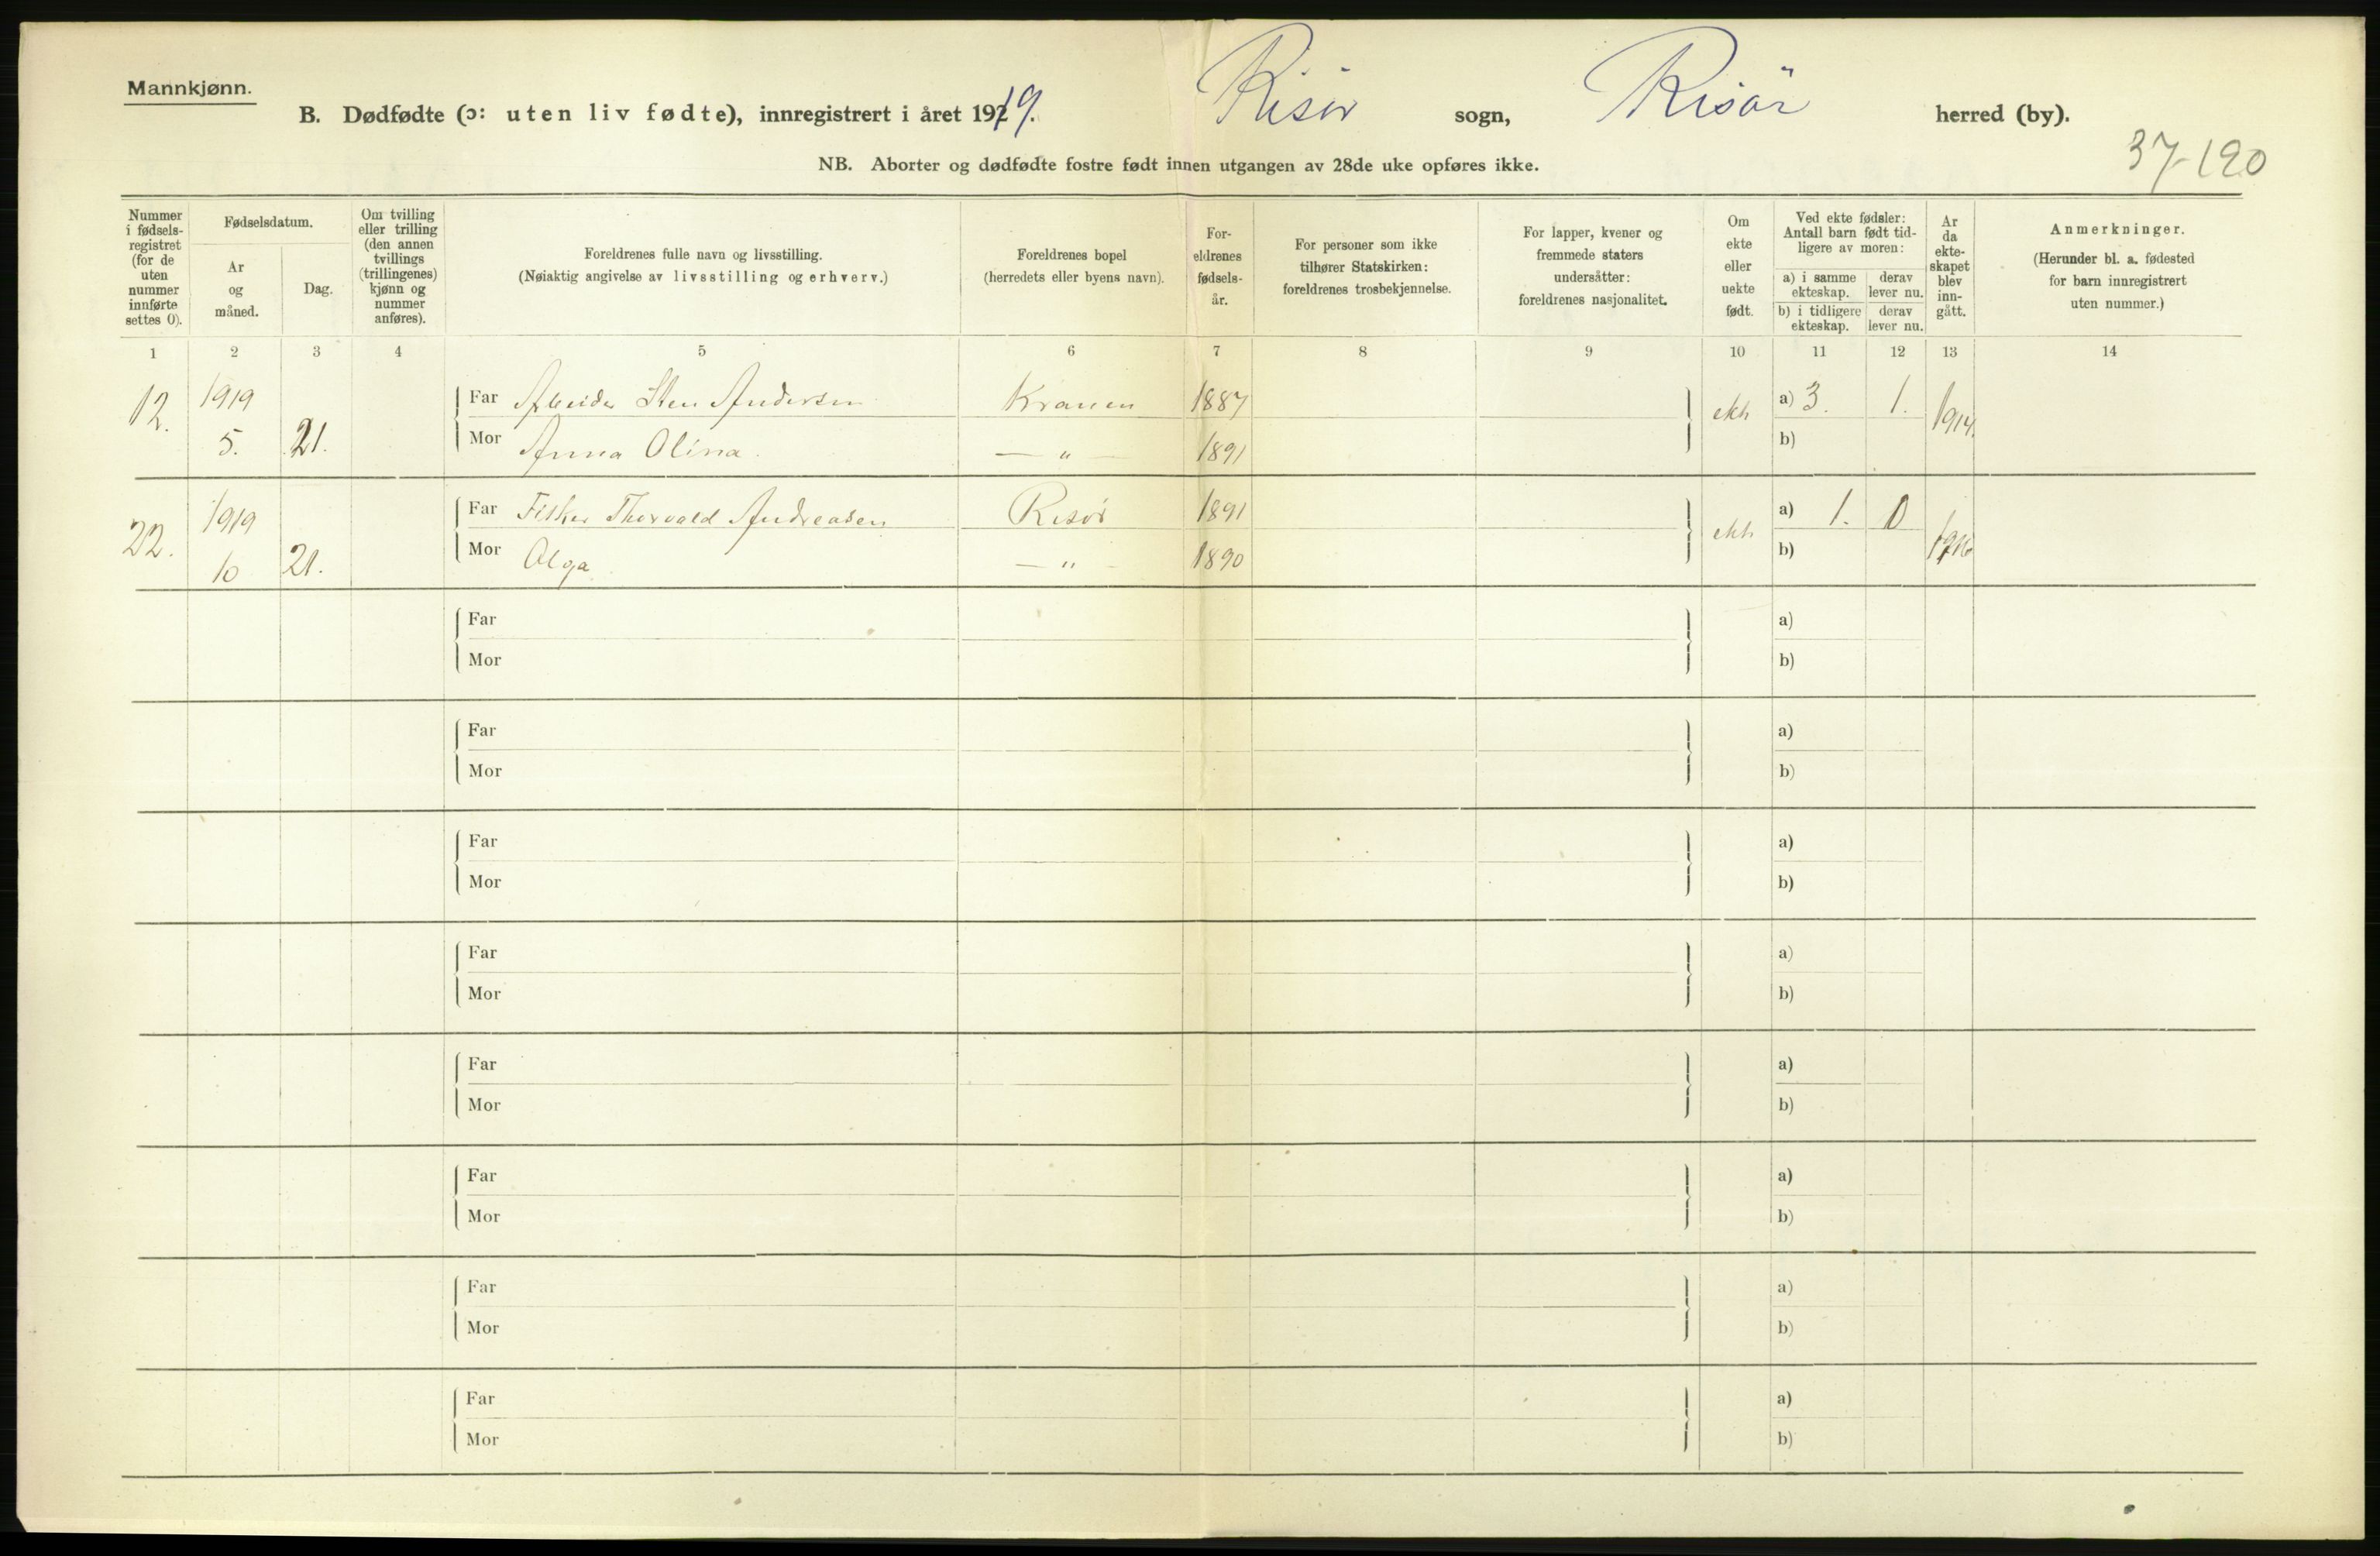 Mannkjønn.
B. Dødfødte (ɔ: uten liv fødte), innregistrert i året 1919. Risør sogn, Risör herred (by).
37-120
NB. Aborter og dødfødte fostre født innen utgangen av 28de uke opføres ikke.
Nummer i fødsels-registret (for de uten nummer innførte settes 0).
Fødselsdatum.
Ar og måned.
Dag.
Om tvilling eller trilling (den annen tvillings (trillingenes) kjønn og nummer anføres).
Foreldrenes fulle navn og livsstilling.
(Nøiaktig angivelse av livsstilling og erhverv.)
Foreldrenes bopel
(herredets eller byens navn).
For-eldrenes fødsels-år.
For personer som ikke tilhører Statskirken: foreldrenes trosbekjennelse.
For lapper, kvener og fremmede staters undersåtter: foreldrenes nasjonalitet.
Om ekte eller uekte født.
Ved ekte fødsler: Antall barn født tid-ligere av moren:
a) i samme ekteskap. derav lever nu.
b) i tidligere ekteskap. derav lever nu.
Ar da ekte-skapet blev inn-gått.
Anmerkninger.
(Herunder bl. a. fødested for barn innregistrert uten nummer.)
1 2 3 4 5 6 7 8 9 10 11 12 13 14
12. 1919 Far Arbeider Sten Andersen Kranen 1887 ekte a) 3. 1. 1914.
5. 21. Mor Anna Olina — " — 1891 b)
22. 1919 Far Fisker Thorvald Andreasen Risør 1891 ekte a) 1. 0 1916
10 21. Mor Olga — " — 1890 b)
Far a)
Mor b)
Far a)
Mor b)
Far a)
Mor b)
Far a)
Mor b)
Far a)
Mor b)
Far a)
Mor b)
Far a)
Mor b)
Far a)
Mor b)